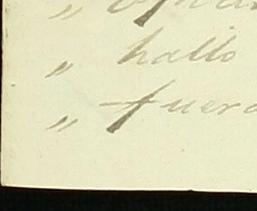 „ hallo
„ fuera